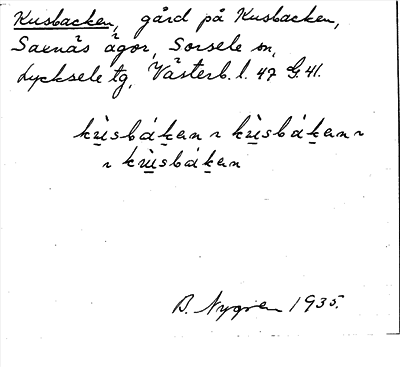 Kusbacken, gård på Kusbacken,
Saxnäs ägor, Sorsele sn,
Lycksele tg, Västerb. l. 47 G 41.
kùsbákan ~ kùsbákan ~
~ kùsbákan
B. Nygren 1935.